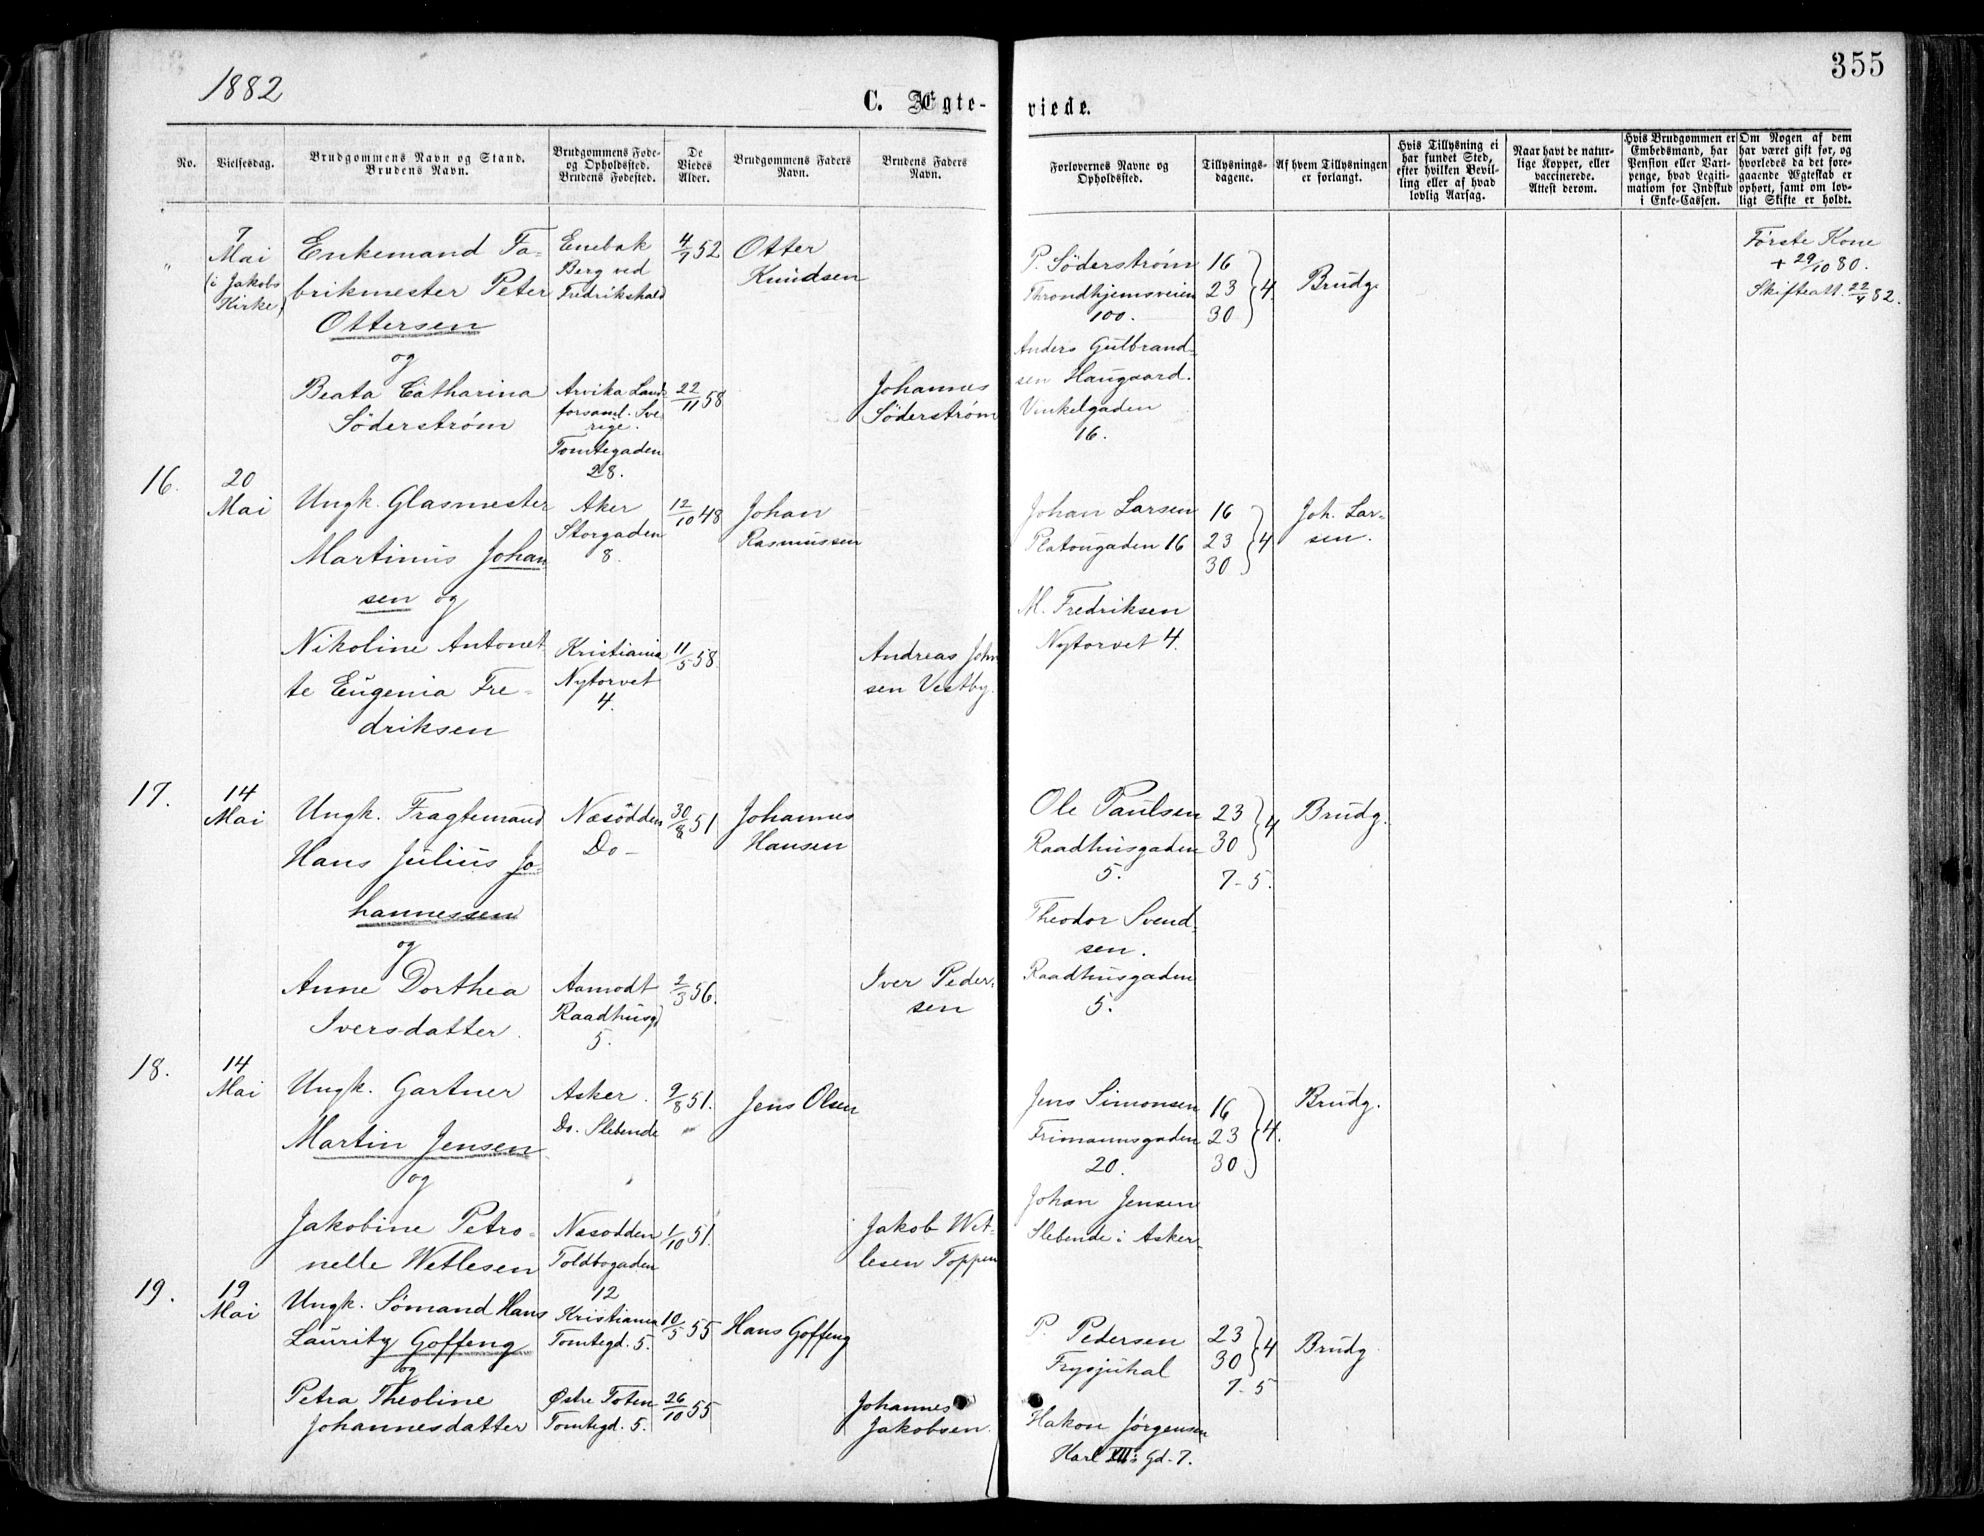 355
1882
C. Ægte-
viede.
No.
Vielsesdag.
Brudgommens Navn og Stand.
Brudens Navn.
Brudgommens Føde-
og Opholdssted.
Brudens Fødested.
De
Viedes
Alder.
Brudgommens Faders
Navn.
Brudens Faders
Navn.
Forlovernes Navne og
Opholdssted.
Tillysnings-
dagene.
Af hvem Tillysningen
er forlangt.
Hvis Tillysning ei
har fundet Sted,
efter hvilken Bevil-
ling eller af hvad
lovlig Aarsag.
Naar havt de natur-
lige Kopper, eller
vaccinerede.
Attest derom.
Hvis Brudgommen er
Embedsmand, har
Pension eller Vart-
penge, hvad Legiti-
mation for Indskud
i Enke-Cassen.
Om Nogen af dem
har været gift før, og
hvorledes da det fore-
gaaende Ægteskab er
ophørt, samt om lov-
ligt Skifte er holdt.
"
7
Mai
(i Jakobs
Kirke)
Enkemand Fa-
brikmester Peter
Ottersen
og
Beata Catharina
Söderstrøm
Enebak
Berg ved
Fredrikshald
Arvika Lands
forsaml. Sve-
rige.
Tomtegaden
28.
4/7 52
22/11 58
Otter
Knudsen
Johannes
Söderstrøm
P. Söderstrøm
Throndhjemsveien
100.
Anders Gulbrand-
sen Haugaard.
Vinkelgaden
16.
16
23 } 4.
30
Brudg.
Første Kone
+ 29/10 80.
Skifteatt. 22/4 82.
16.
20
Mai
Ungk. Glasmester
Martinus Johan
sen og
Nikoline Antonet
te Eugenia Fre-
driksen
Aker
Storgaden
8.
Kristiania
Nytorvet
4.
12/10 48
11/5 58.
Johan
Rasmussen
Andreas John
sen Vestby.
Johan Larsen
Platougaden 16
M. Fredriksen
Nytorvet 4.
16
23 } 4
30
Joh. Lar-
sen.
17.
14
Mai
Ungk. Fragtemand
Hans Julius Jo-
hannessen
og
Anne Dorthea
Iversdatter.
Næsödden
Do -
Aamodt
Raadhusg
5.
30/8 51
2/3 56.
Johannes
Hansen
Iver Peder-
sen
Ole Paulsen
Raadhusgaden
5.
Theodor Svend-
sen.
Raadhusgaden
5.
23
30 } 4
7-5.
Brudg.
18.
14
Mai
Ungk. Gartner
Martin Jensen
og
Jakobine Petro-
nelle Wetlesen
Asker.
Do. Slebende
Næsodden
Toldbogaden
12
9/8 51.
1/10 51.
Jens Olsen
Jakob Wet-
lesen Toppen
Jens Simonsen
Frimannsgaden
20.
Johan Jensen
Slebende i Asker.
16
23 } 4.
30
Brudg.
19.
19
Mai
Ungk. Sömand Hans
Lauritz Goffeng
og
Petra Theoline
Johannesdatter
Kristiania
Tomtegd. 5.
Østre Toten
Tomtegd. 5.
10/5 55
26/10 55
Hans Goffeng
Johannes
Jakobsen.
P. Pedersen
Frysjuhal
Hakon Jørgensen
Karl XII's Gd. 7.
23
30 } 4
7-5
Brudg.